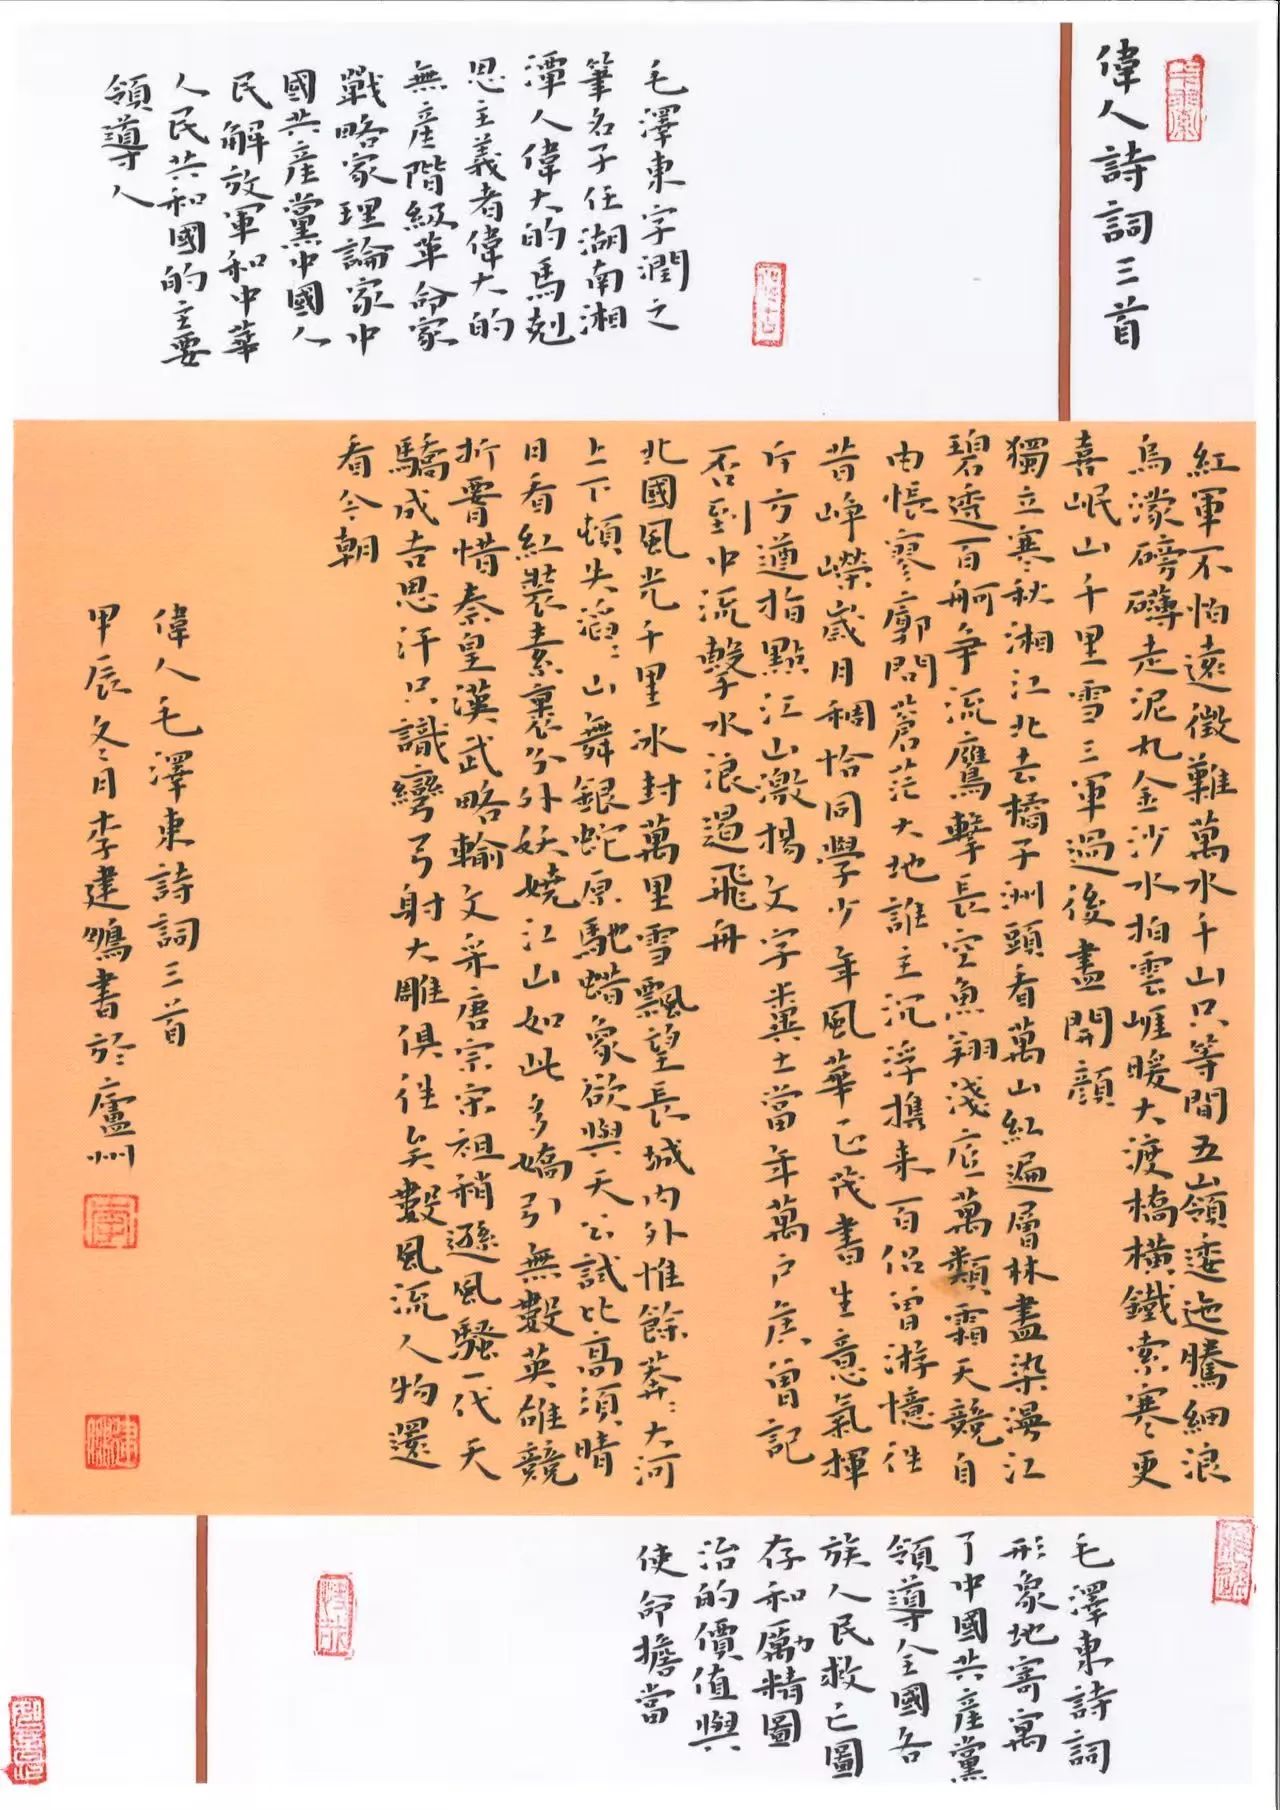 偉人詩詞三首
毛澤東字潤之
筆名子任湖南湘
潭人偉大的馬剋
思主義者偉大的
無産階級革命家
戰略家理論家中
國共産黨中國人
民解放軍和中華
人民共和國的主要
領導人
紅軍不怕遠徵難萬水千山只等間五嶺逶迤騰細浪
烏濛磅礴走泥丸金沙水拍雲崖暖大渡橋橫鐵索寒更
喜岷山千里雪三軍過後盡開顔
獨立寒秋湘江北去橘子洲頭看萬山紅遍層林盡染漫江
碧透百舸争流鷹擊長空魚翔淺底萬類霜天競自
由悵寥廓問蒼茫大地誰主沉浮攜来百侣曾游憶往
昔崢嶸歲月稠恰同學少年風華正茂書生意氣揮
斥方遒指點江山激揚文字糞土當年萬户侯曾記
否到中流擊水浪遏飛舟
北國風光千里冰封萬里雪飄望長城内外惟餘莽〻大河
上下頓失滔〻山舞銀蛇原馳蠟象欲與天公試比高須晴
日看紅裝素裹分外妖嬈江山如此多嬌引無數英雄競
折腰惜秦皇漢武略輸文采唐宗宋祖稍遜風騷一代天
驕成吉思汗只識彎弓射大雕俱往矣數風流人物還
看今朝
偉人毛澤東詩詞三首
甲辰冬月李建鳴書於廬州
毛澤東詩詞
形象地寄寓
了中國共産黨
領導全國各
族人民救亡圖
存和勵精圖
治的價值與
使命擔當